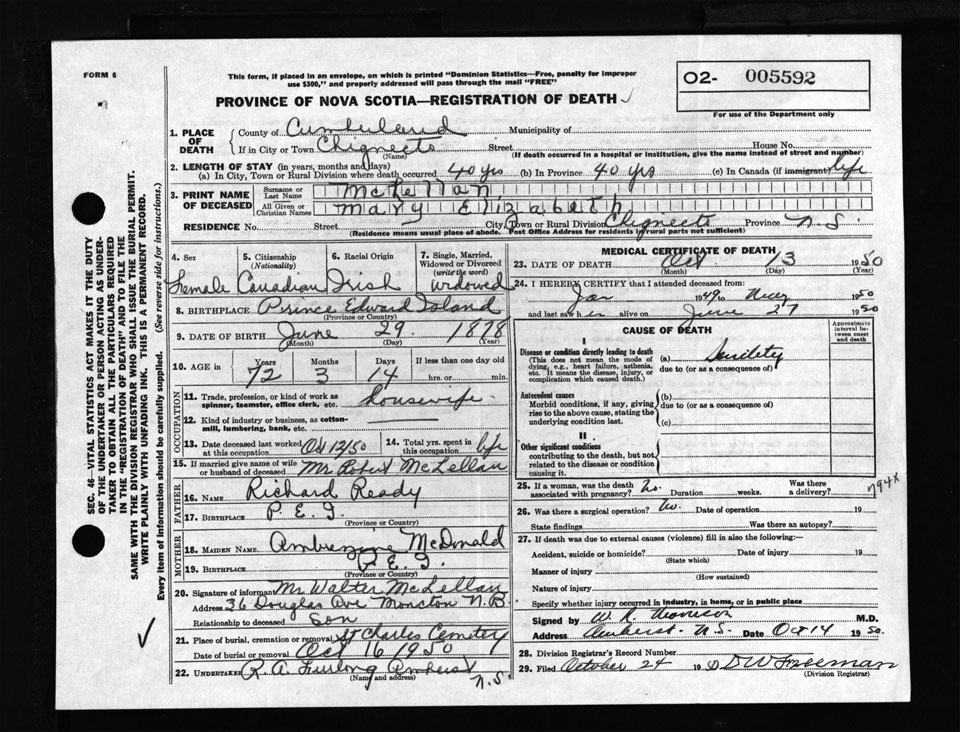 FORM 6
This form, if placed in an envelope, on which is printed "Dominion Statistics—Free, penalty for improper
use $300," and properly addressed will pass through the mail "FREE"
O2- 005592
For use of the Department only
PROVINCE OF NOVA SCOTIA—REGISTRATION OF DEATH
1. PLACE OF DEATH
County of Cumberland Municipality of
If in City or Town Chignecto Street House No.
(Name) (If death occurred in a hospital or institution, give the name instead of street and number)
2. LENGTH OF STAY (in years, months and days)
(a) In City, Town or Rural Division where death occurred 40 yrs (b) In Province 40 yrs (c) In Canada (if immigrant) life
3. PRINT NAME OF DECEASED
Surname or Last Name McLellan
All Given or Christian Names Mary Elizabeth
RESIDENCE No. Street City, Town or Rural Division Chignecto Province N.S.
(Residence means usual place of abode. Post Office Address for residents in rural parts not sufficient)
4. Sex 5. Citizenship (Nationality) 6. Racial Origin 7. Single, Married, Widowed or Divorced (write the word)
Female Canadian Irish widowed
8. BIRTHPLACE Prince Edward Island
(Province or Country)
9. DATE OF BIRTH June 29. 1878
(Month) (Day) (Year)
10. AGE in Years Months Days If less than one day old
72 3 14 hrs. or min.
OCCUPATION
11. Trade, profession, or kind of work as spinner, teamster, office clerk, etc. housewife.
12. Kind of industry or business, as cotton-mill, lumbering, bank, etc.
13. Date deceased last worked at this occupation Oct 12/50 14. Total yrs. spent in this occupation life
15. If married give name of wife or husband of deceased Mr Robert McLellan
FATHER
16. NAME Richard Ready
17. BIRTHPLACE P.E.I.
(Province or Country)
MOTHER
18. MAIDEN NAME McDonald
19. BIRTHPLACE P.E.I.
(Province or Country)
20. Signature of informant Mr Walter McLellan
Address 36 Douglas Ave Moncton N.B.
Relationship to deceased Son
21. Place of burial, cremation or removal St Charles Cemetery
Date of burial or removal Oct 16 1950
22. UNDERTAKER R.A. Furlong Amherst N.S.
(Name and address)
MEDICAL CERTIFICATE OF DEATH
23. DATE OF DEATH Oct 13 1950
(Month) (Day) (Year)
24. I HEREBY CERTIFY that I attended deceased from:
Jan 1949 to 1950
and last saw her alive on June 27 1950
CAUSE OF DEATH
Approximate interval between onset and death
I
Disease or condition directly leading to death
(This does not mean the mode of dying, e.g., heart failure, asthenia, etc. It means the disease, injury, or complication which caused death.)
(a) Senility
due to (or as a consequence of)
Antecedent causes
Morbid conditions, if any, giving rise to the above cause, stating the underlying condition last.
(b)
due to (or as a consequence of)
(c)
II
Other significant conditions
contributing to the death, but not related to the disease or condition causing it.
25. If a woman, was the death associated with pregnancy? No. Duration weeks. Was there a delivery?
794X
26. Was there a surgical operation? No. Date of operation 19
State findings Was there an autopsy?
27. If death was due to external causes (violence) fill in also the following:—
Accident, suicide or homicide? Date of injury 19
(State which)
Manner of injury
(How sustained)
Nature of injury
Specify whether injury occurred in industry, in home, or in public place
Signed by M.D.
Address Amherst N.S. Date Oct 14 1950.
28. Division Registrar's Record Number
29. Filed October 24 19 D W Freeman
(Division Registrar)
SEC. 46—VITAL STATISTICS ACT MAKES IT THE DUTY
OF THE UNDERTAKER OR PERSON ACTING AS UNDER-
TAKER TO OBTAIN ALL THE PARTICULARS REQUIRED
IN THE "REGISTRATION OF DEATH" AND TO FILE THE
SAME WITH THE DIVISION REGISTRAR WHO SHALL ISSUE THE BURIAL PERMIT.
WRITE PLAINLY WITH UNFADING INK. THIS IS A PERMANENT RECORD.
Every item of information should be carefully supplied. (See reverse side for instructions.)